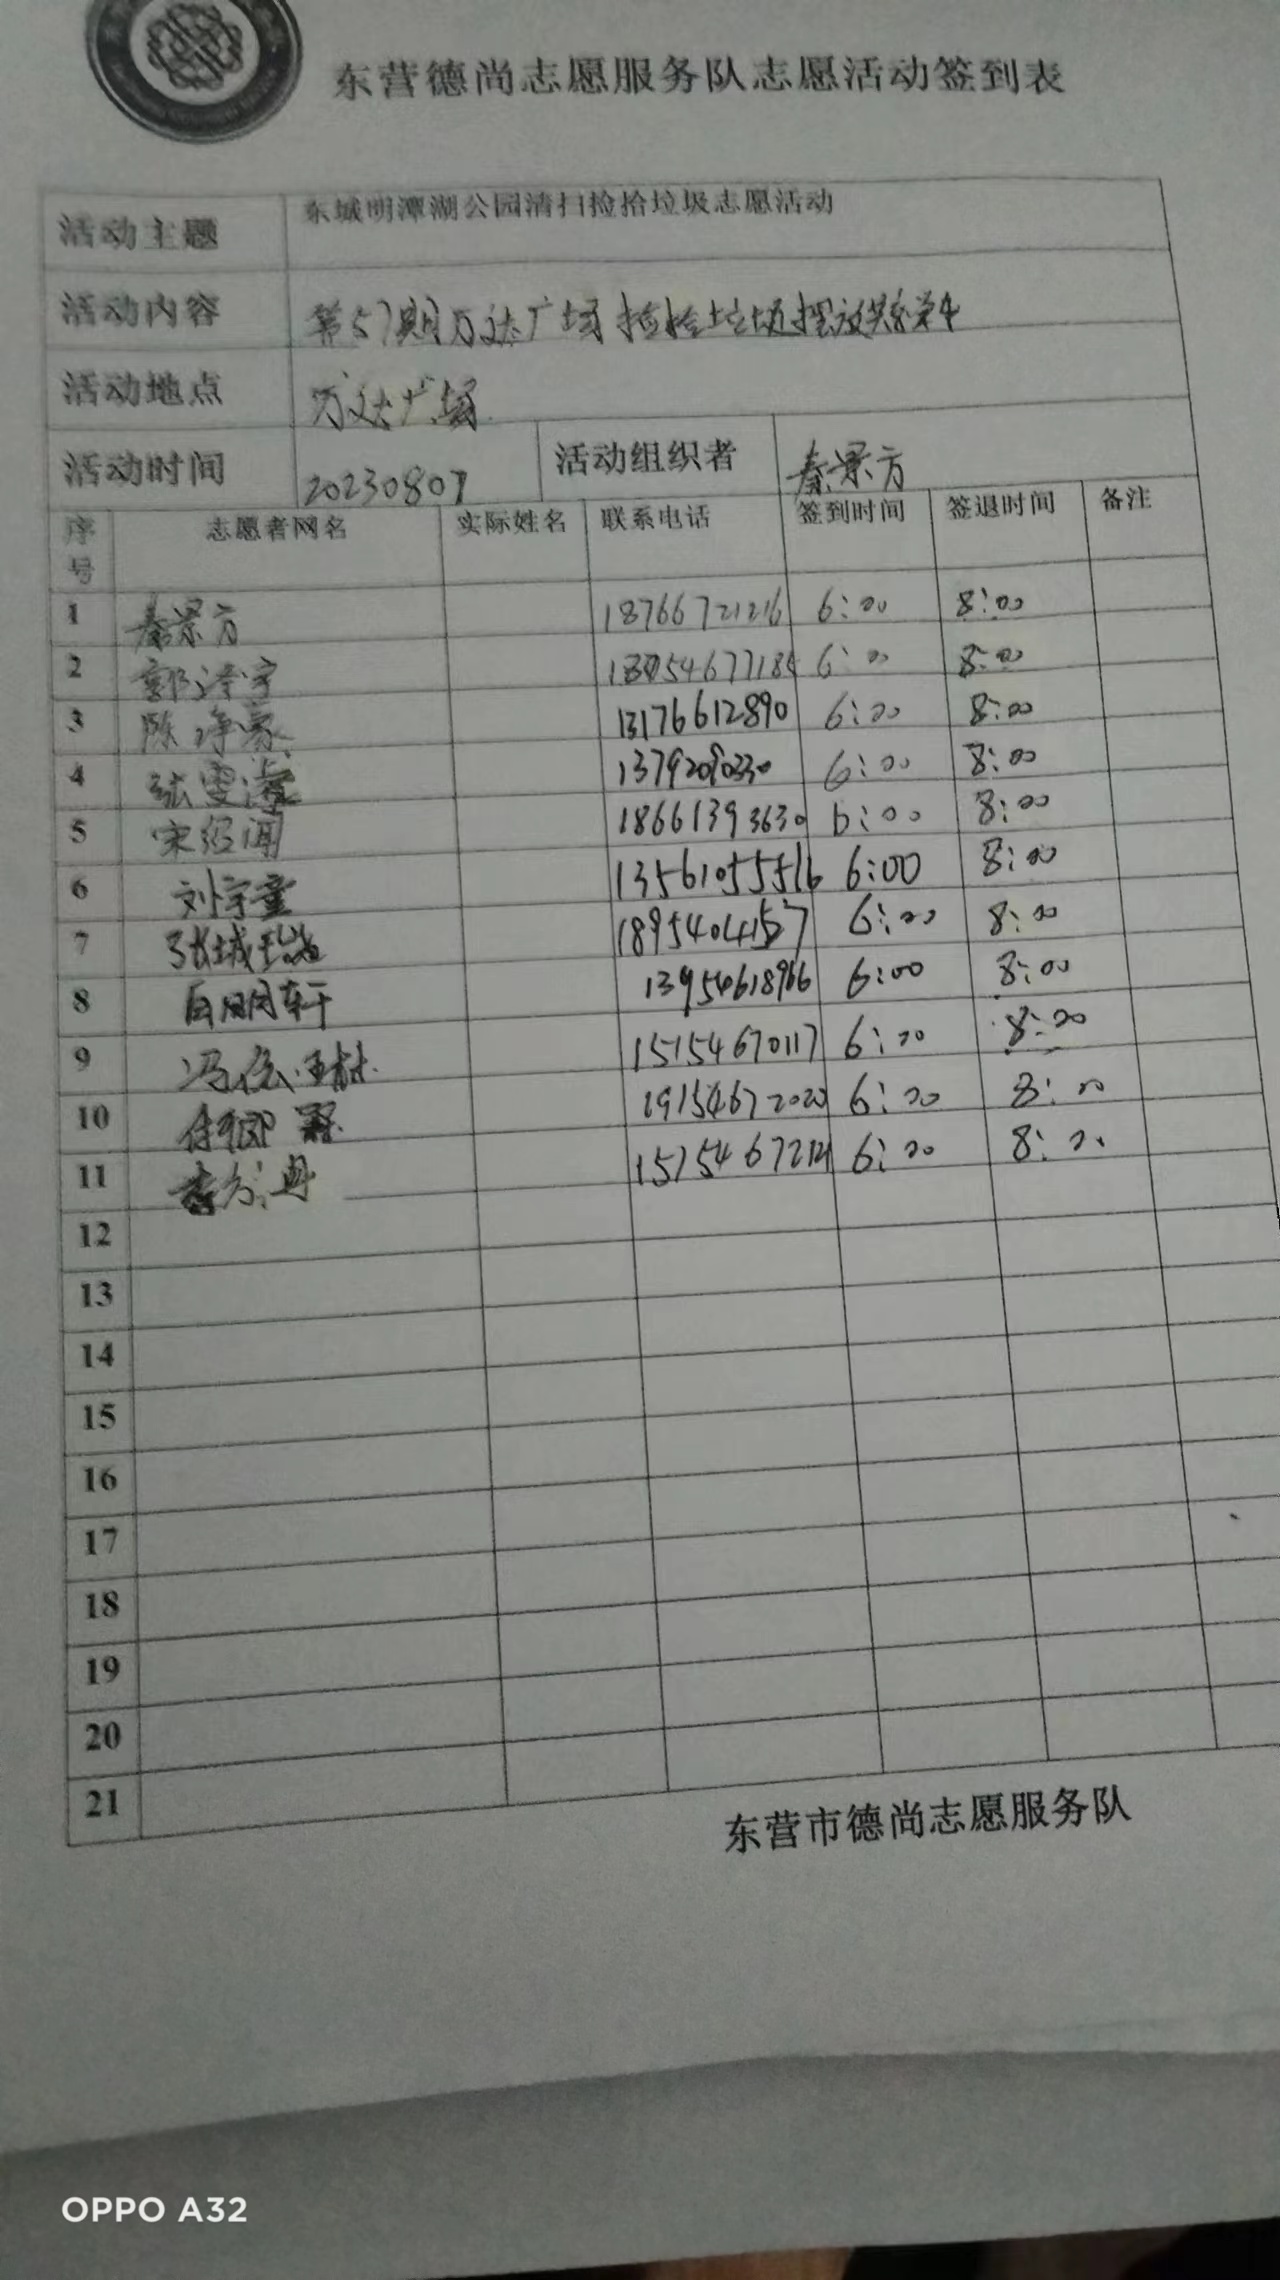 东营德尚志愿服务队志愿活动签到表
活动主题 东城明潭湖公园清扫捡拾垃圾志愿活动
活动内容 第57期万达广场捡拾垃圾摆放
活动地点 万达广场
活动时间 20230807 活动组织者 秦景方
序号 志愿者网名 实际姓名 联系电话 签到时间 签退时间 备注
1 秦景方 18766721216 6:00 8:00
2 郭泽宇 6:00 8:00
3 陈净豪 13176612890 6:00 8:00
4 张雯 6:00 8:00
5 宋绍闻 18661393630 6:00 8:00
6 刘宇童 13561055516 6:00 8:00
7 张城 6:00 8:00
8 白明轩 13954618966 6:00 8:00
9 冯 15154670117 6:00 8:00
10 19154672020 6:00 8:00
11 6:00 8:00
12
13
14
15
16
17
18
19
20
21
东营市德尚志愿服务队
OPPO A32